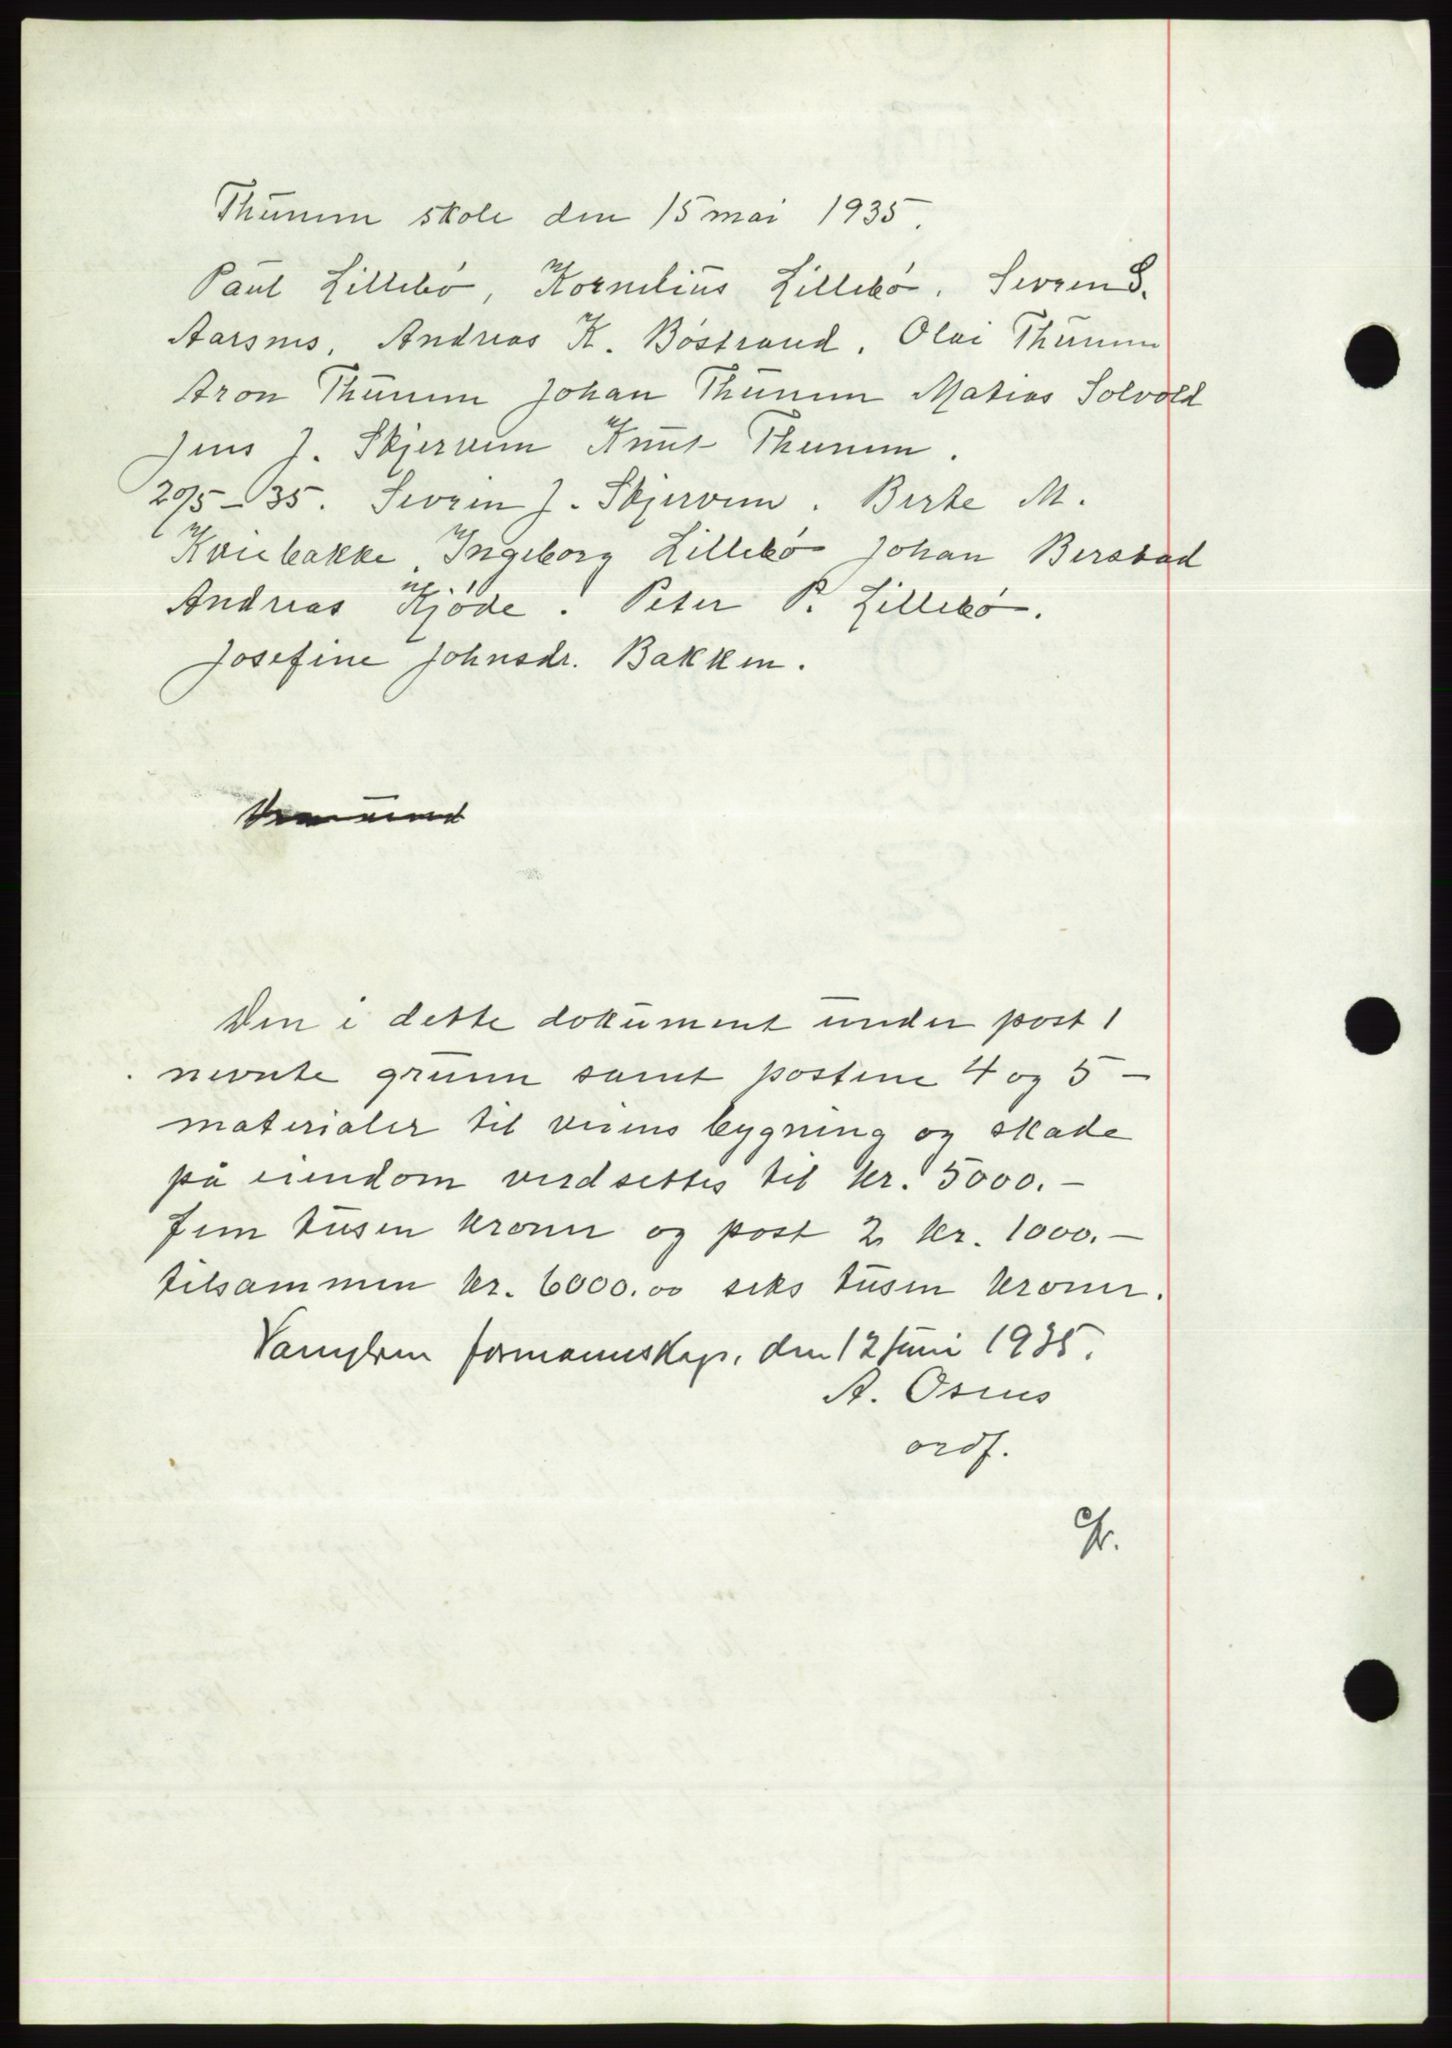 Thunem skole den 15 mai 1935.
Paul Lillebø, Kornelius Lillebø. Sevrin S.
Aarsnes, Andreas K. Bøstrand. Olai Thunem
Aron Thunem Johan Thunem Matias Solvold
Jens J. Skjervem Knut Thunem.
20/5-35. Sevrin J. Skjervem. Berte M.
Kviebakke, Ingeborg Lillebø Johan Berstad
Andreas Kjøde. Peter P. Lillebø.
Josefine Johnsdr. Bakken.
Den i dette dokument under post 1
nevnte grunn samt postene 4 og 5 -
materialer til veiens bygning og skade
på eiendom verdsettes til kr. 5000.-
fem tusen kroner og post 2 kr. 1000.-
tilsammen kr. 6000.00 seks tusen kroner.
Vanylven formannskap, den 12 juni 1935.
A. Osnes
ordf.